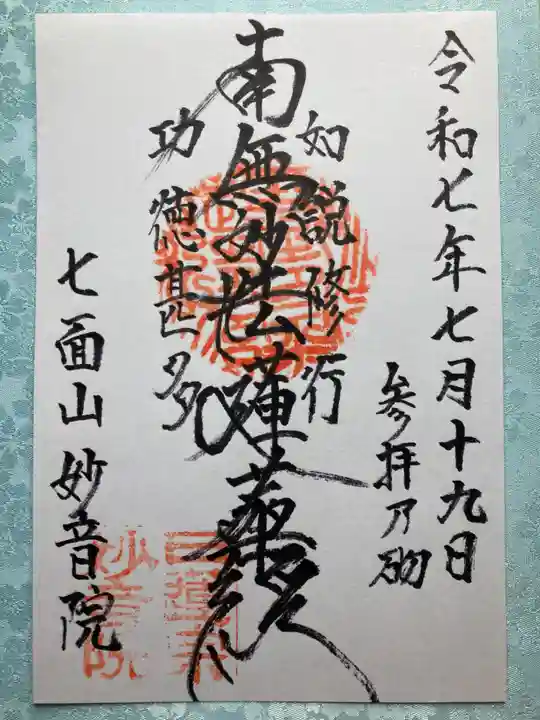 令和七年七月十九日
参拝乃砌
如説修行
南無妙法蓮華経
功徳甚匹多
七面山妙音院